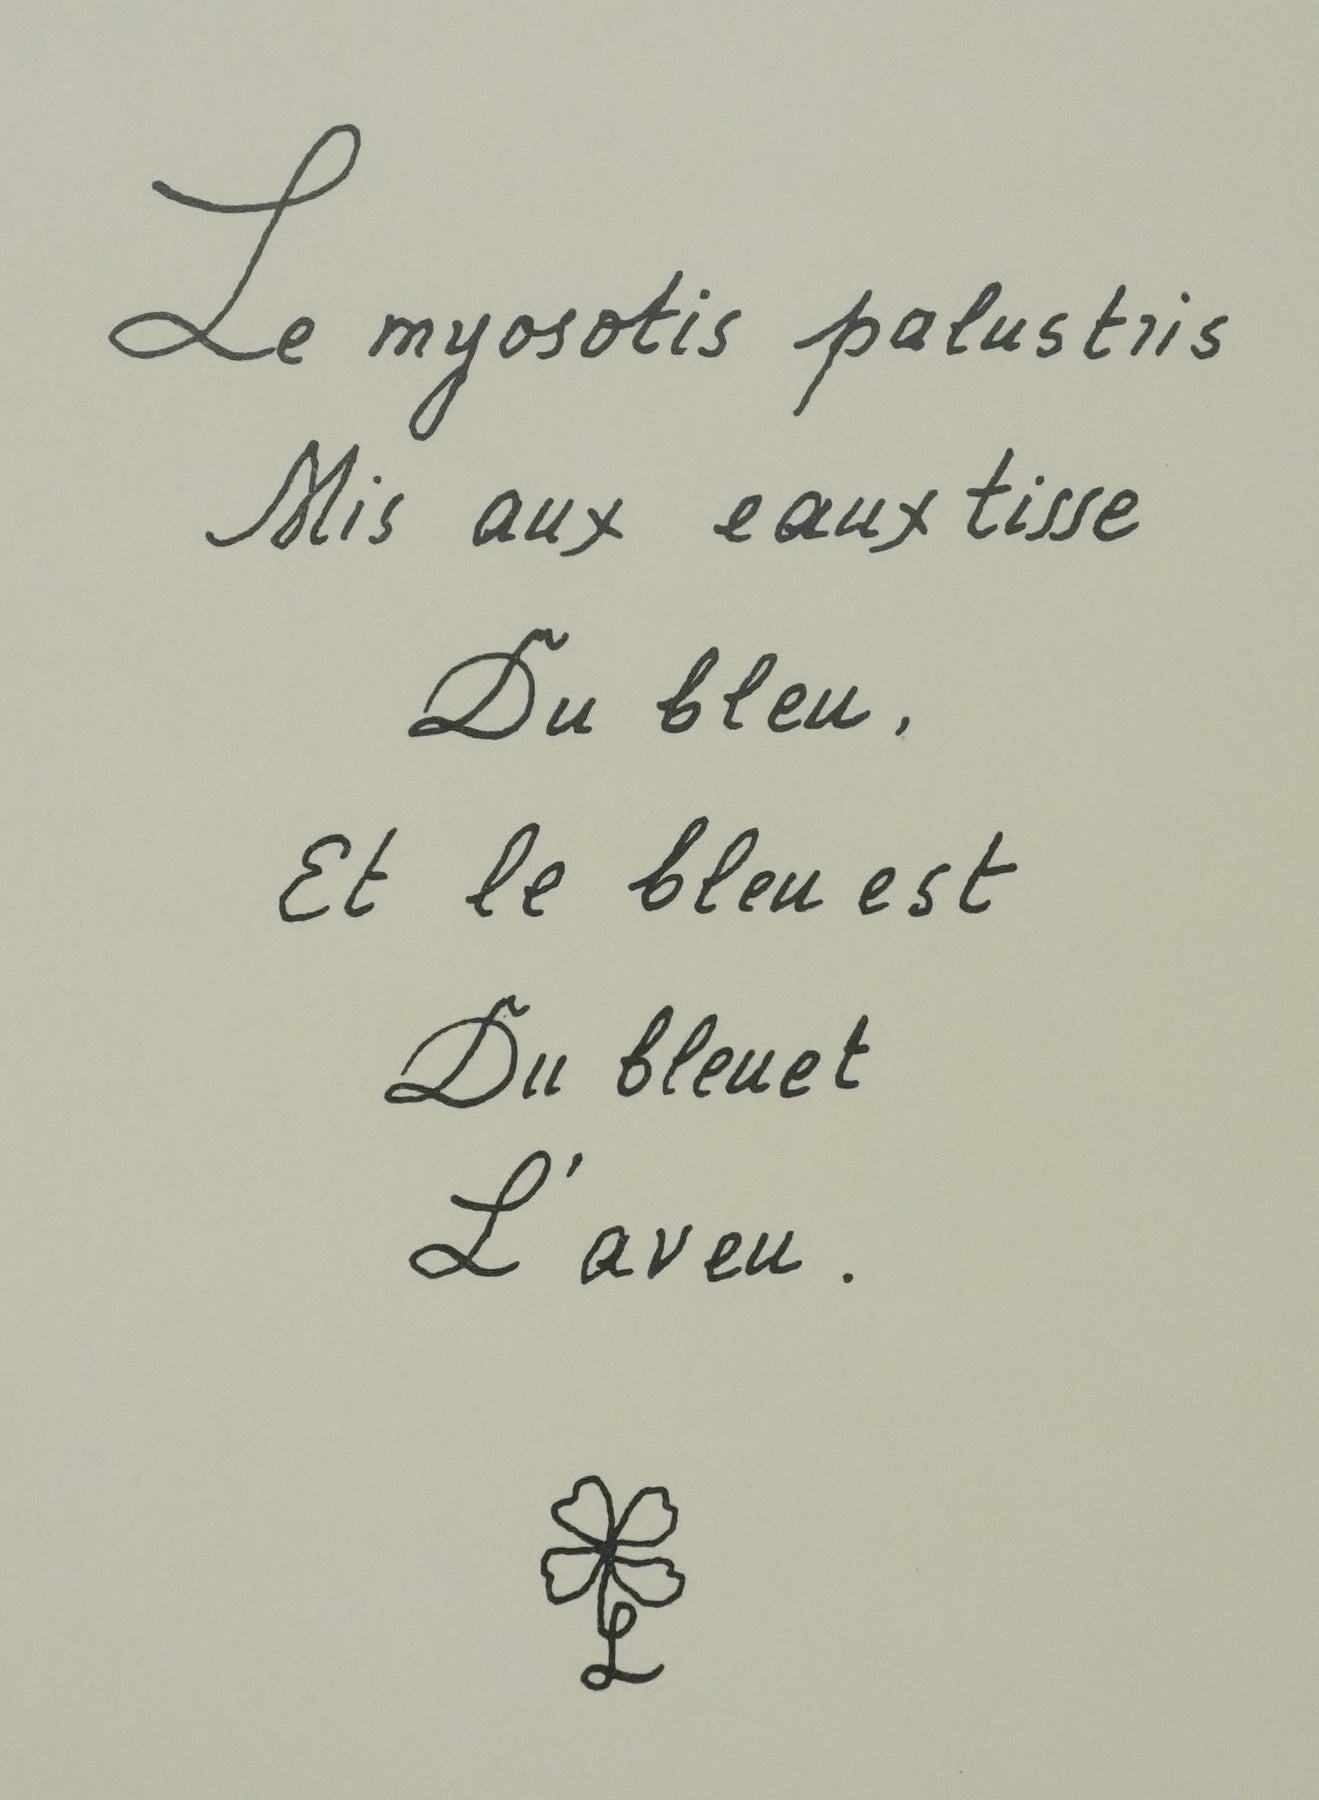 Le myosotis palustris
Mis aux eaux tisse
Du bleu,
Et le bleu est
Du bleuet
L'aveu.
L